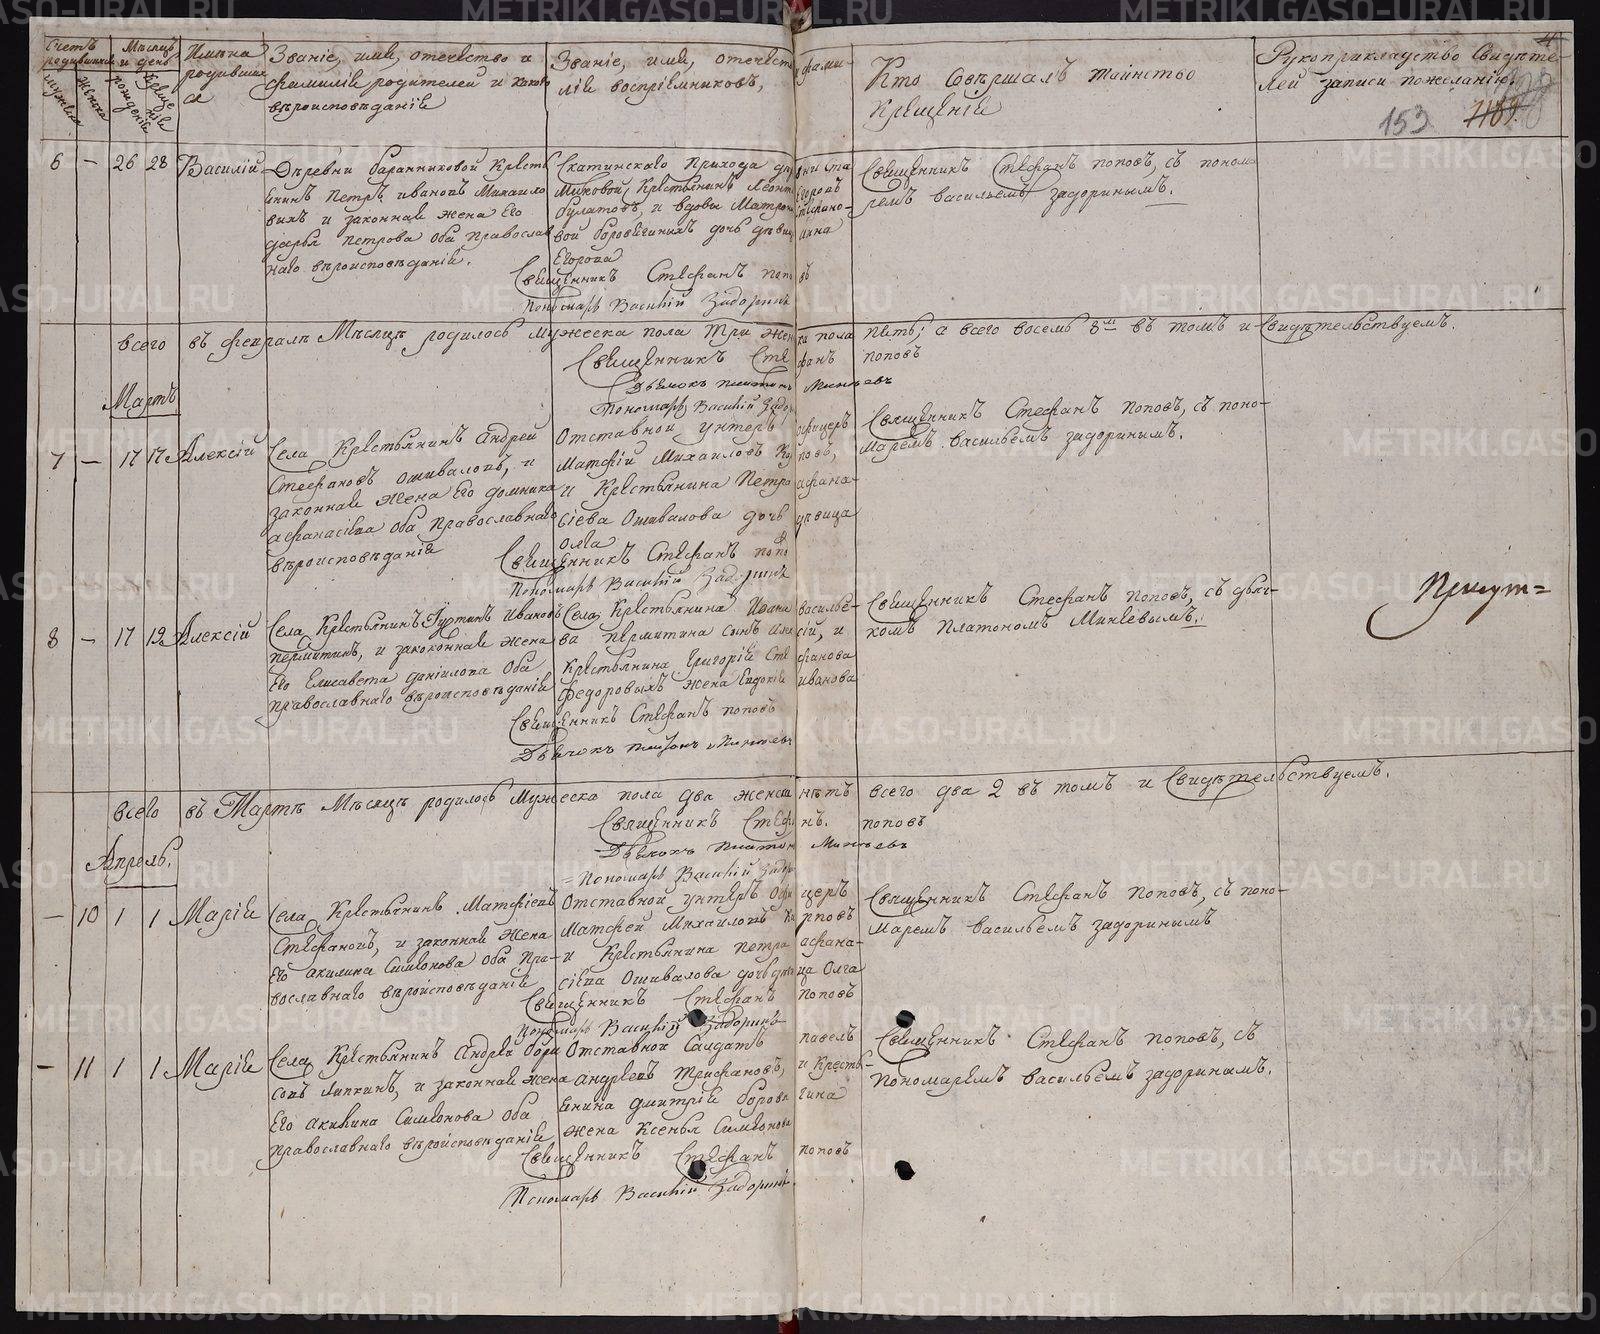 Счетъ родившихся
мужска
женска
Мѣсяцъ и день
рожденія
крещенія
Имена родившихся
Званіе, имя, отечество и
фамилія родителей и какого
вѣроисповѣданія
Званіе, имя, отечество и фами-
лія воспріемниковъ,
Кто совершалъ таинство
крещенія
Рукоприкладство свидѣте-
лей записи пожеланію
153
6 — 26 28 Василій
Деревни баранниковой Кресть
янинъ Петръ ивановъ Михаило
выхъ и законная жена его
дарья Петрова оба православ
наго вѣроисповѣданія.
Скатинскаго прихода
Крестьянинъ Леонт
булатовъ, и вдовы Матро
дочь дѣвица Анна
Егорова
Священникъ Стефанъ поповъ
Пономарь Василій Задоринъ
Священникъ Стефанъ поповъ, съ поном
ремъ васильемъ задоринымъ.
всего въ февралѣ Мѣсяцѣ родилось мужеска пола три женска пола пять; а всего восемь 8мь въ томъ и свидѣтельствуемъ.
Священникъ Стефанъ поповъ
Дьячокъ платонъ Минѣевъ
Пономарь Василій Задор
Мартъ
7 — 17 17 Алексій
Села Крестьянинъ Андрей
Стефановъ ошиваловъ, и
законная жена его домника
афанасіева оба православнаго
вѣроисповѣданія
Отставной унтеръ офицеръ
Матфій Михаиловъ
и Крестьянина Петра афана-
сіева Ошивалова дочь дѣвица
Олга
Священникъ Стефанъ попо
Пономарь Василій Задоринъ
Священникъ Стефанъ поповъ, съ поно-
маремъ васильемъ задоринымъ.
8 — 17 19 Алексій
Села Крестьянинъ Іустинъ Ивановъ
пермитинъ, и законная жена
его Елисавета даніилова оба
православнаго вѣроисповѣданія
Села Крестьянина Ивана василье-
ва пермитина сынъ
Крестьянина Григорія Стефанова
Федоровыхъ жена Евдокія иванова
Священникъ Стефанъ поповъ
Дьячокъ платонъ Минѣевъ
Священникъ Стефанъ поповъ, съ дьяч-
комъ Платономъ Минѣевымъ.
всего въ Мартѣ Мѣсяцѣ родилось Мужеска пола два женска нѣтъ всего два 2 въ томъ и свидѣтельствуемъ.
Священникъ Стефанъ. поповъ
Дьячокъ Платон Минѣевъ
Пономарь Василій Задор
Апрель.
— 10 1 1 Марія
Села Крестьянинъ Матфіевъ
Стефановъ, и законная жена
его акилина Симеонова оба пра-
вославнаго вѣроисповѣданія
Отставной унтеръ офицеръ
Матфей Михаиловъ Карповъ
и Крестьянина петра афана-
сіева Ошивалова дочь
Олга
Священникъ Стефанъ поповъ
Пономарь Василій Задоринъ
Священникъ Стефанъ поповъ, съ поно-
маремъ васильемъ задоринымъ
— 11 1 1 Марія
Села Крестьянинъ Андрей бори
совъ липкинъ, и законная жена
его акилина Симеонова оба
православнаго вѣроисповѣданія
Отставной Салдатъ павелъ
андреевъ Трифановъ, и Кресть-
янина дмитрія борови гина
жена Ксенья Симеонова
Священникъ Стефанъ поповъ
Пономарь Василій Задоринъ
Священникъ Стефанъ поповъ, съ
Пономаремъ васильемъ задоринымъ.